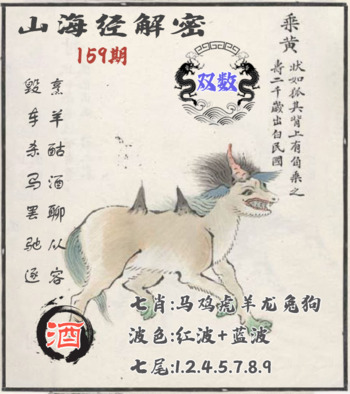 山海经解密
159期
双数
乘黄
状如狐其背上有角乘之
寿二千岁出白民国
烹羊酤酒聊从容
毁车杀马罢驰逐
酒
七肖:马鸡虎羊龙兔狗
波色:红波+蓝波
七尾:1.2.4.5.7.8.9